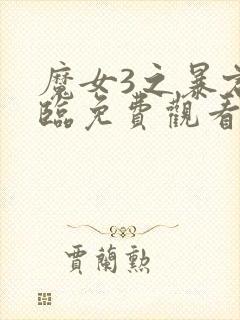 魔女3之暴君
臨免費觀看
賈蘭勲